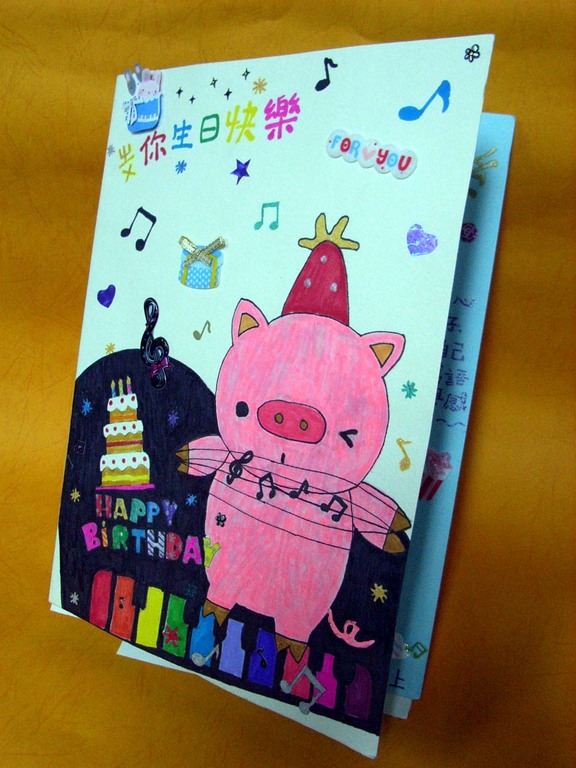 你生日快樂
FOR YOU
HAPPY
BiRTHDAY
心
己
感
上